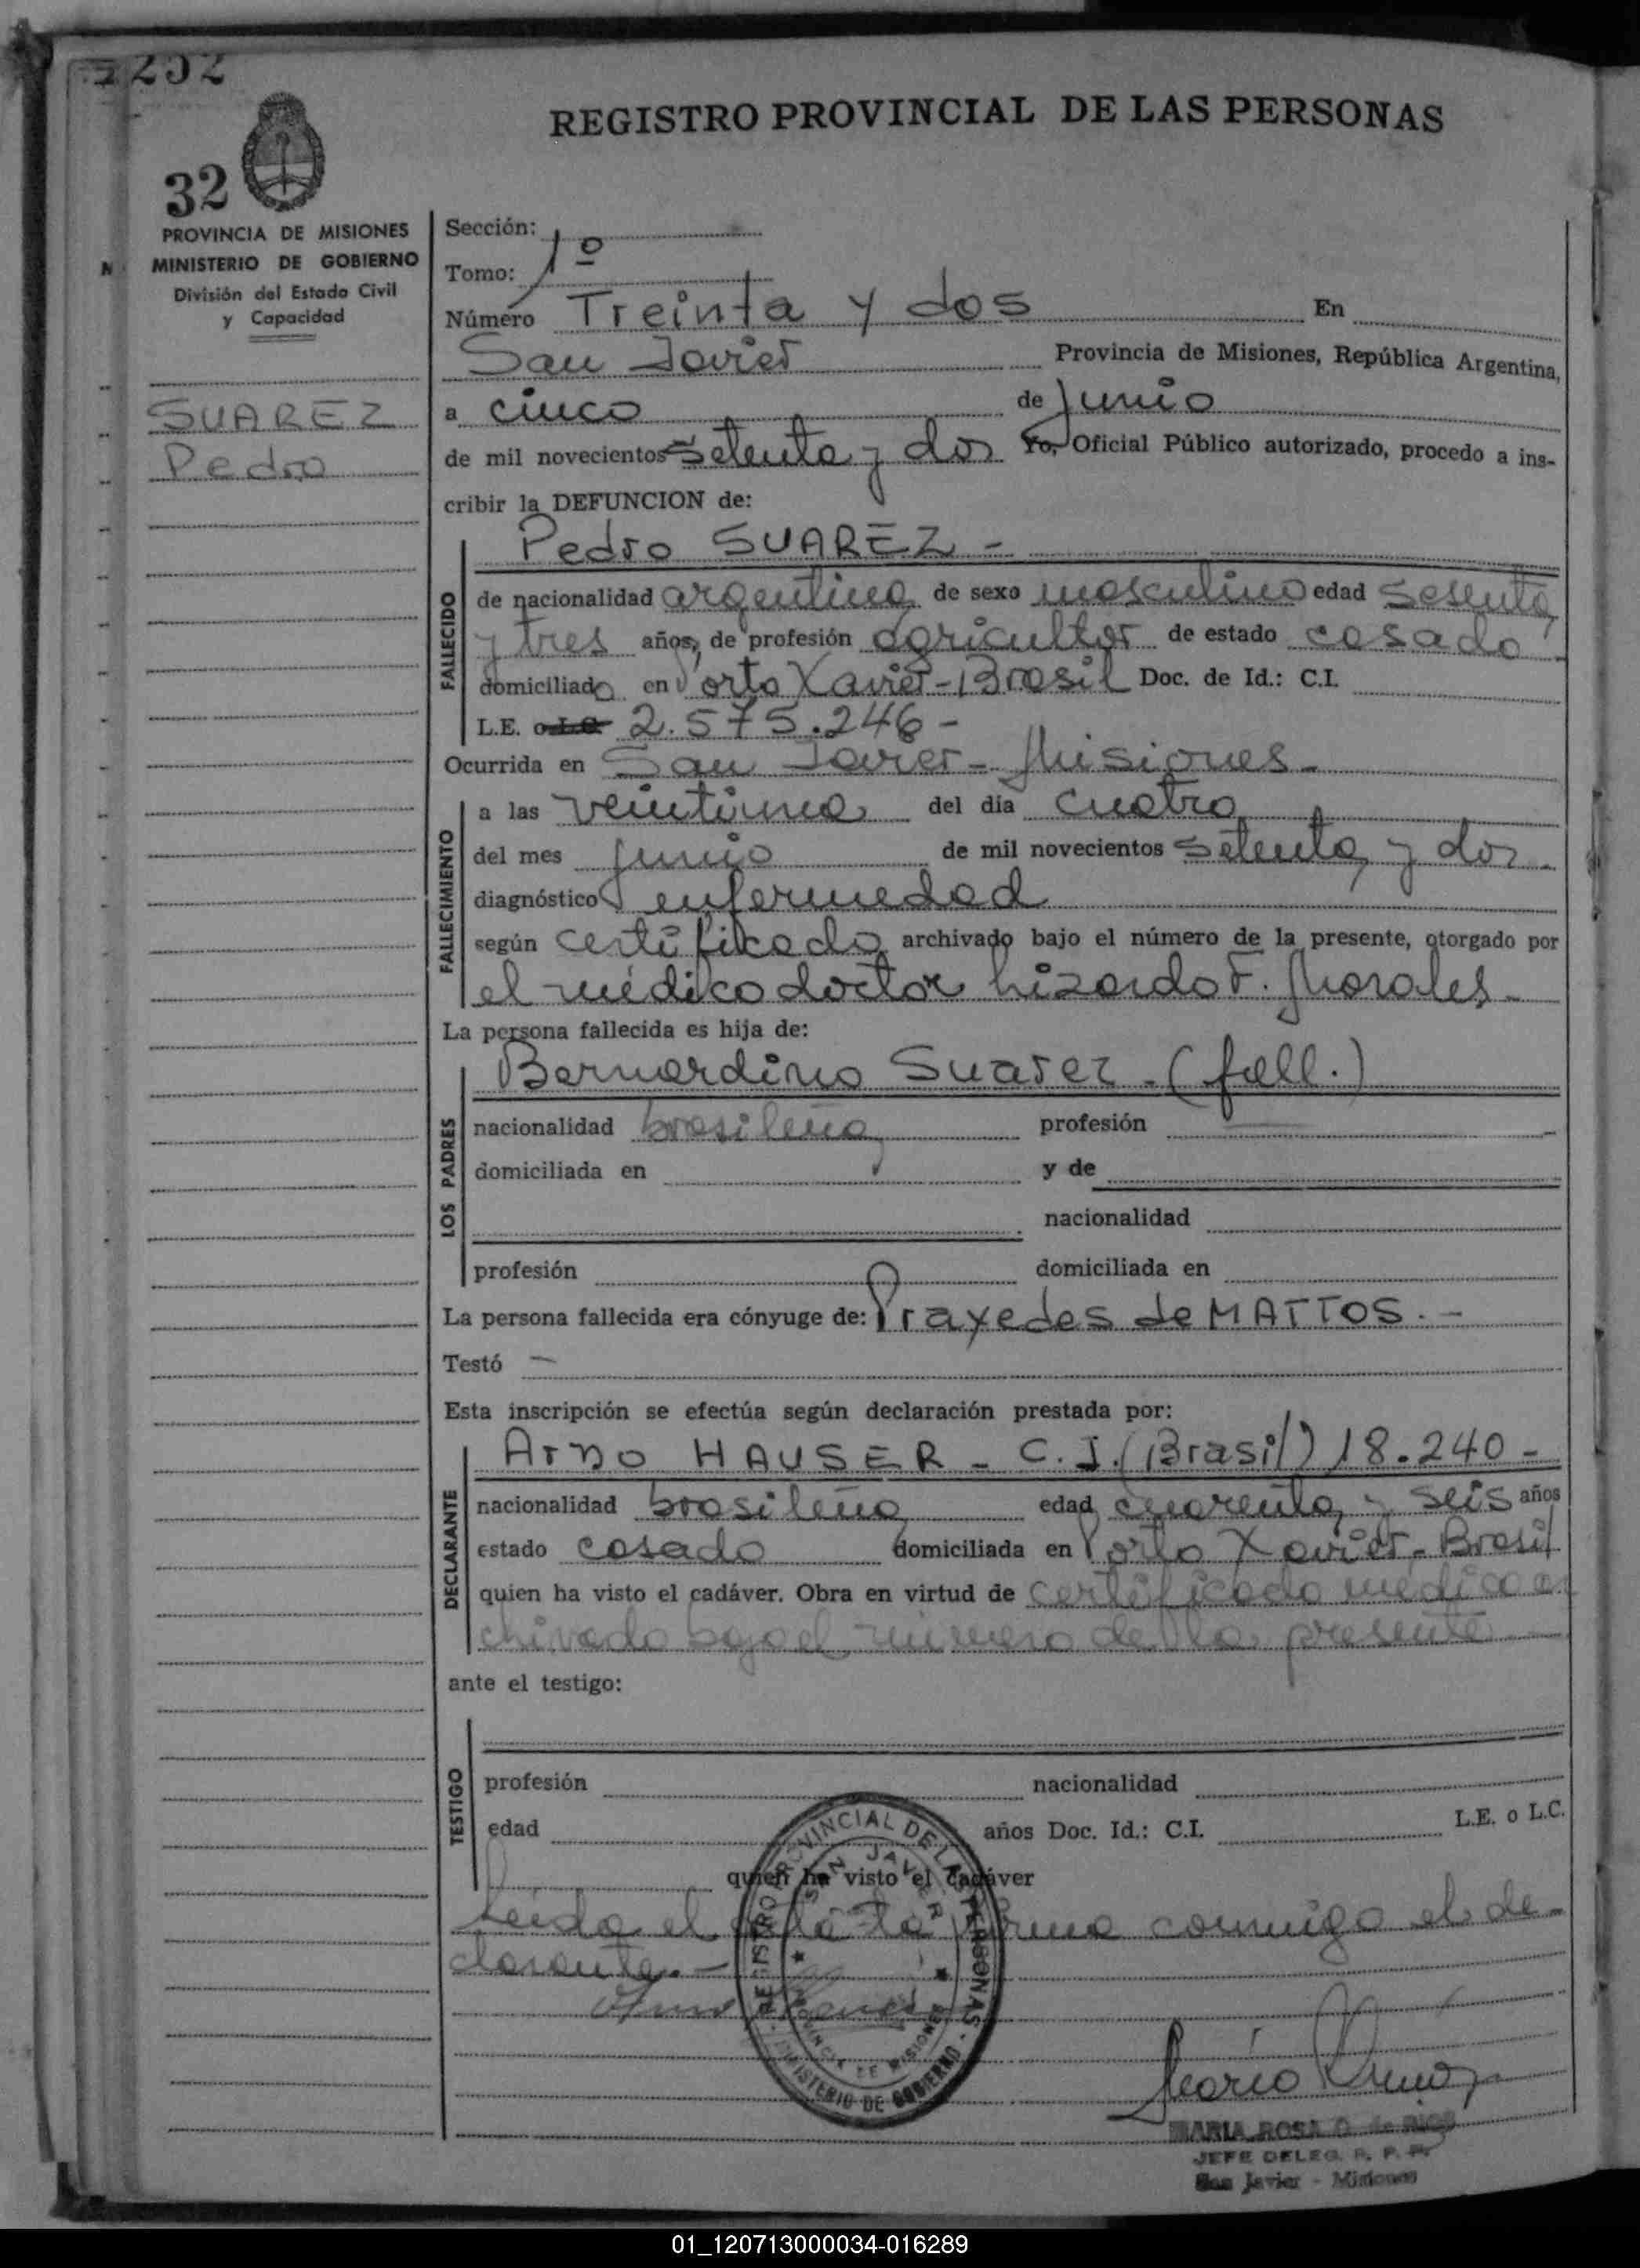 252
REGISTRO PROVINCIAL DE LAS PERSONAS
32
PROVINCIA DE MISIONES
MINISTERIO DE GOBIERNO
División del Estado Civil
y Capacidad
SUAREZ
Pedro
Sección:
Tomo: 1º
Número Treinta y dos En
San Javier Provincia de Misiones, República Argentina,
a cinco de junio
de mil novecientos setenta y dos Yo, Oficial Público autorizado, procedo a ins-
cribir la DEFUNCION de:
Pedro SUAREZ -
FALLECIDO
de nacionalidad argentina de sexo masculino edad sesenta
y tres años, de profesión agricultor de estado casado
domiciliado en Porto Xavier - Brasil Doc. de Id.: C.I.
L.E. o L.C. 2.575.246 -
Ocurrida en San Javier - Misiones -
FALLECIMIENTO
a las veintiuna del día cuatro
del mes junio de mil novecientos setenta y dos -
diagnóstico enfermedad
según certificado archivado bajo el número de la presente, otorgado por
el médico doctor Lizardo F. Morales -
La persona fallecida es hija de:
LOS PADRES
Bernardino Suarez - (fall.)
nacionalidad brasileña profesión
domiciliada en y de
nacionalidad
profesión domiciliada en
La persona fallecida era cónyuge de: Praxedes de MATTOS. -
Testó -
Esta inscripción se efectúa según declaración prestada por:
DECLARANTE
Arno HAUSER - C.I. (Brasil) 18.240 -
nacionalidad brasileña edad cuarenta y seis años
estado casado domiciliada en Porto Xavier - Brasil
quien ha visto el cadáver. Obra en virtud de certificado médico ar
chivado bajo el número de la presente
ante el testigo:
TESTIGO
profesión nacionalidad
edad años Doc. Id.: C.I. L.E. o L.C.
quien ha visto el cadáver
Leida el acta la firma conmigo el de-
clarante. -
REGISTRO PROVINCIAL DE LAS PERSONAS
SAN JAVIER
PROVINCIA DE MISIONES
MINISTERIO DE GOBIERNO
MARIA ROSA
JEFE DELEG. R. P. P.
San Javier - Misiones
01_120713000034-016289